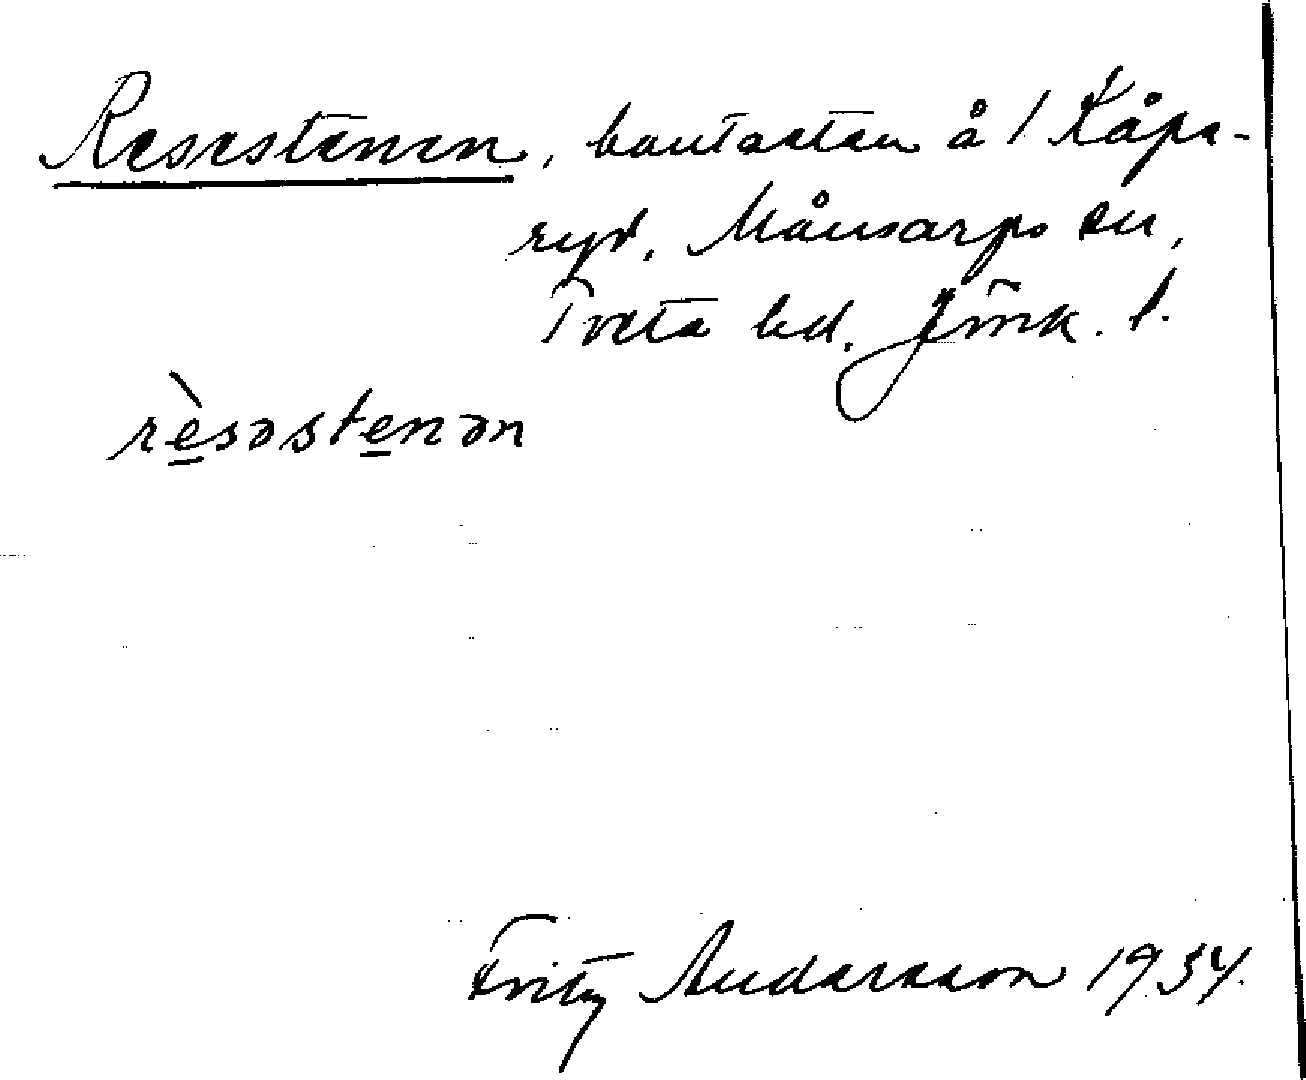 Resestenen, bautasten å 1 Kåpe-
ryd, Månsarps sn,
Tveta hd. Jönk. l.
rèsəstenən
Fritz Andersson 1934.